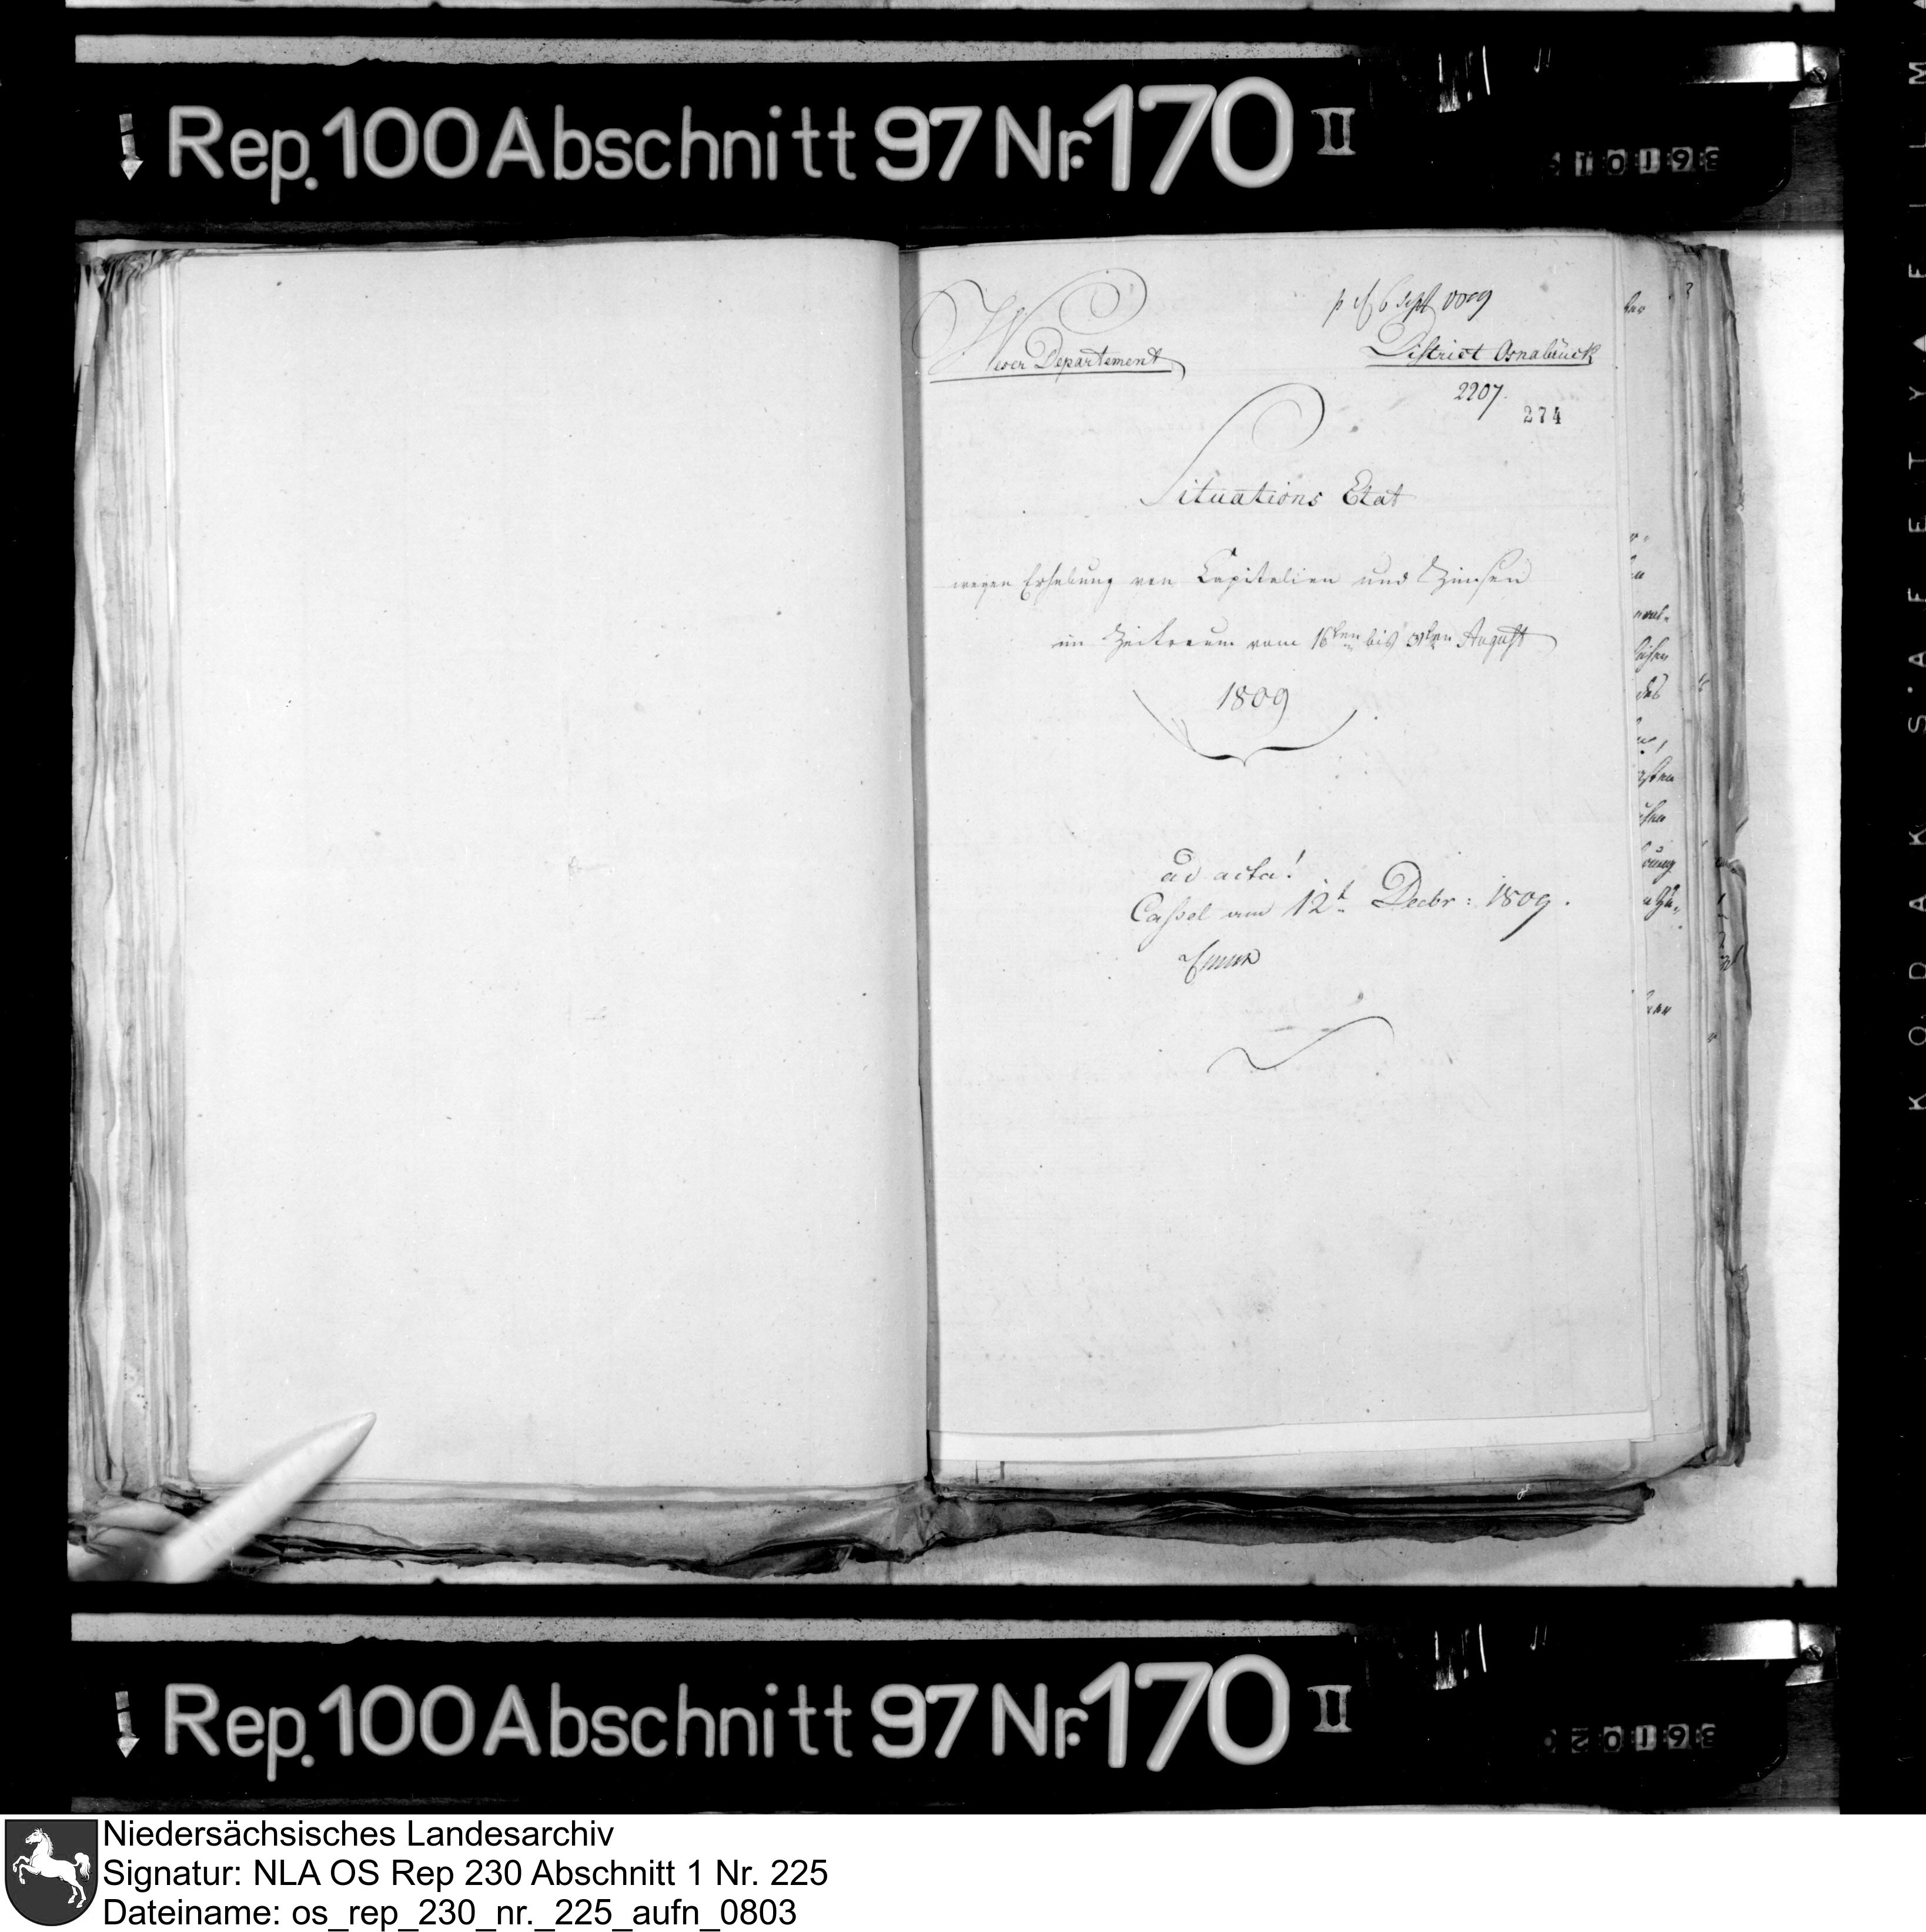 Rep. 100 Abschnitt 97 Nr. 170 II
Weser Departement
6 Sept 1809
District Osnabrück
2207.
274
Situations Etat
wegen Erhebung von Capitalien und Zinsen
im Zeitraum vom 16ten bis 31ten August
1809
ad acta!
Cassel am 12t Decbr: 1809.
Rep. 100 Abschnitt 97 Nr. 170 II
KODAK SAFETY FILM
Niedersächsisches Landesarchiv
Signatur: NLA OS Rep 230 Abschnitt 1 Nr. 225
Dateiname: os_rep_230_nr._225_aufn_0803